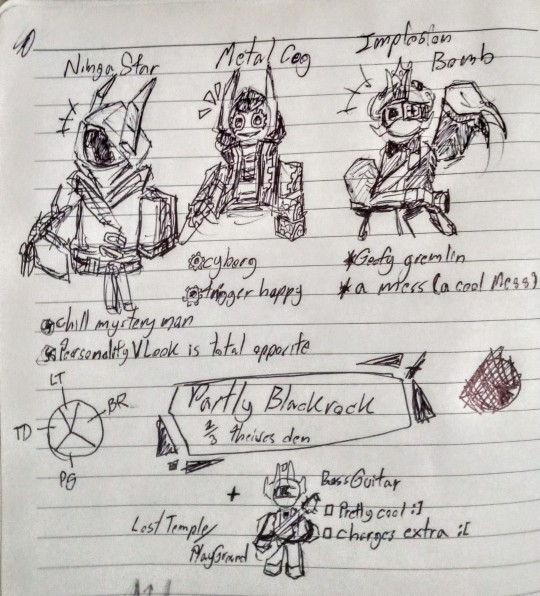 Ninga Star
Metal Cog
Implosion
Bomb
cyborg
trigger happy
Goofy gremlin
a mess (a cool Mess)
chill mystery man
Personality V Look is total opposite
LT
BR
TD
PG
Partly Blackrock
1/3 theives den
+
Lost Temple/
Playground
Bass Guitar
Pretty cool :]
charges extra :[